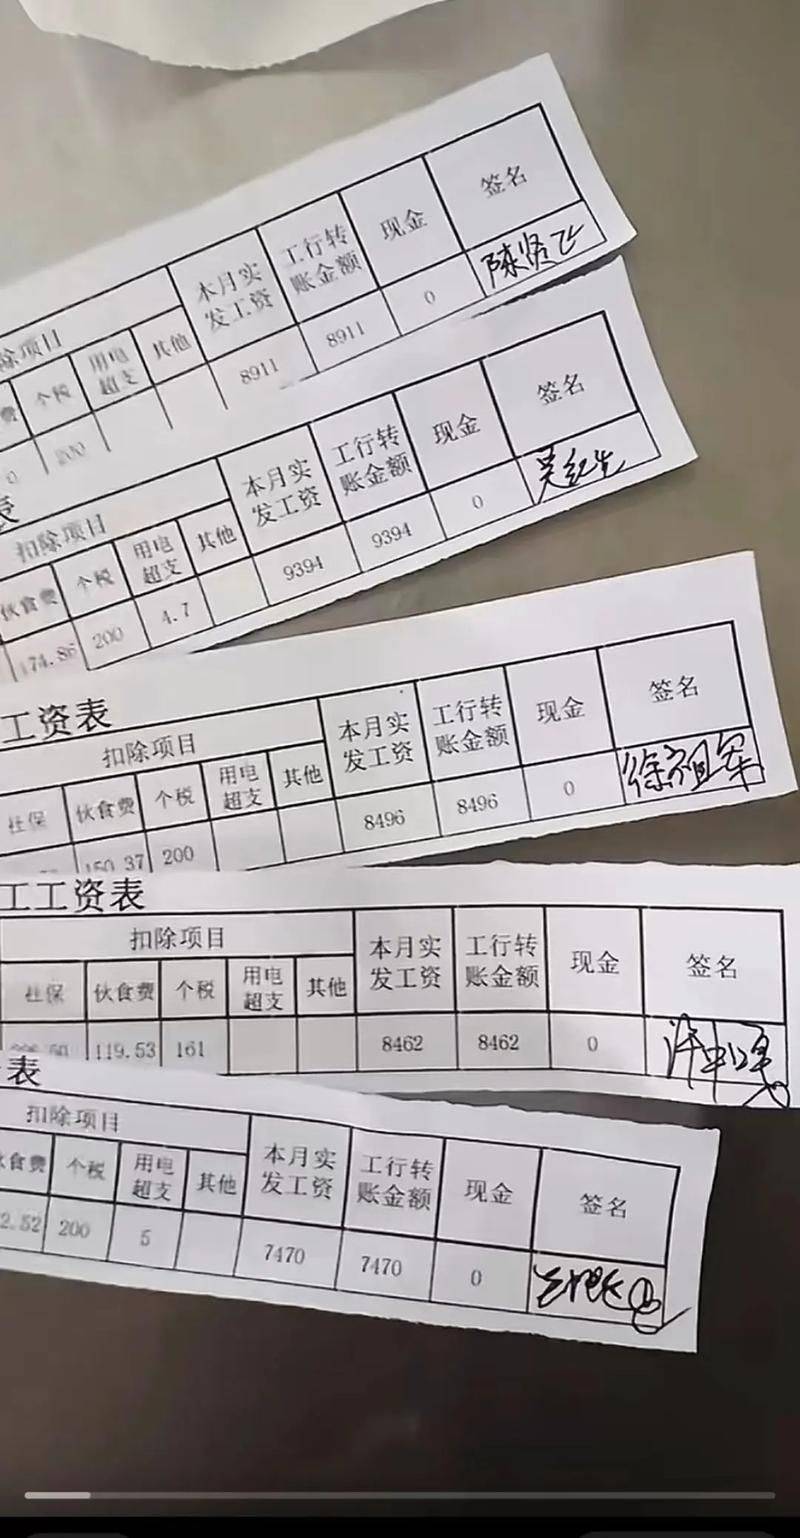 签名
现金
工行转
账金额
本月实
发工资
除项目
其他
用电
超支
个税
费
陈贤飞
0
8911
8911
200
0
签名
现金
工行转
账金额
本月实
发工资
表
扣除项目
其他
用电
超支
个税
伙食费
吴纪生
0
9394
9394
4.7
200
174.86
工资表
扣除项目
本月实
发工资
工行转
账金额
现金
签名
社保
伙食费
个税
用电
超支
其他
150.37
200
8496
8496
0
徐祖军
工工资表
扣除项目
本月实
发工资
工行转
账金额
现金
签名
社保
伙食费
个税
用电
超支
其他
119.53
161
8462
8462
0
表
扣除项目
本月实
发工资
工行转
账金额
现金
签名
食费
个税
用电
超支
其他
2.52
200
5
7470
7470
0